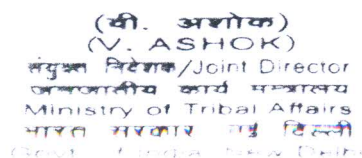 (वी. अशोक)
(V. ASHOK)
संयुक्त निदेशक/Joint Director
जनजातीय कार्य मन्त्रालय
Ministry of Tribal Affairs
भारत सरकार नई दिल्ली
Govt. India New Delhi